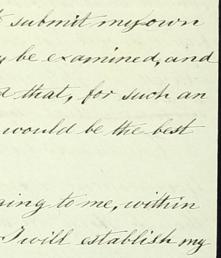 submit my own
be examined, and
that, for such an
would be the best
to me, within
I will establish my